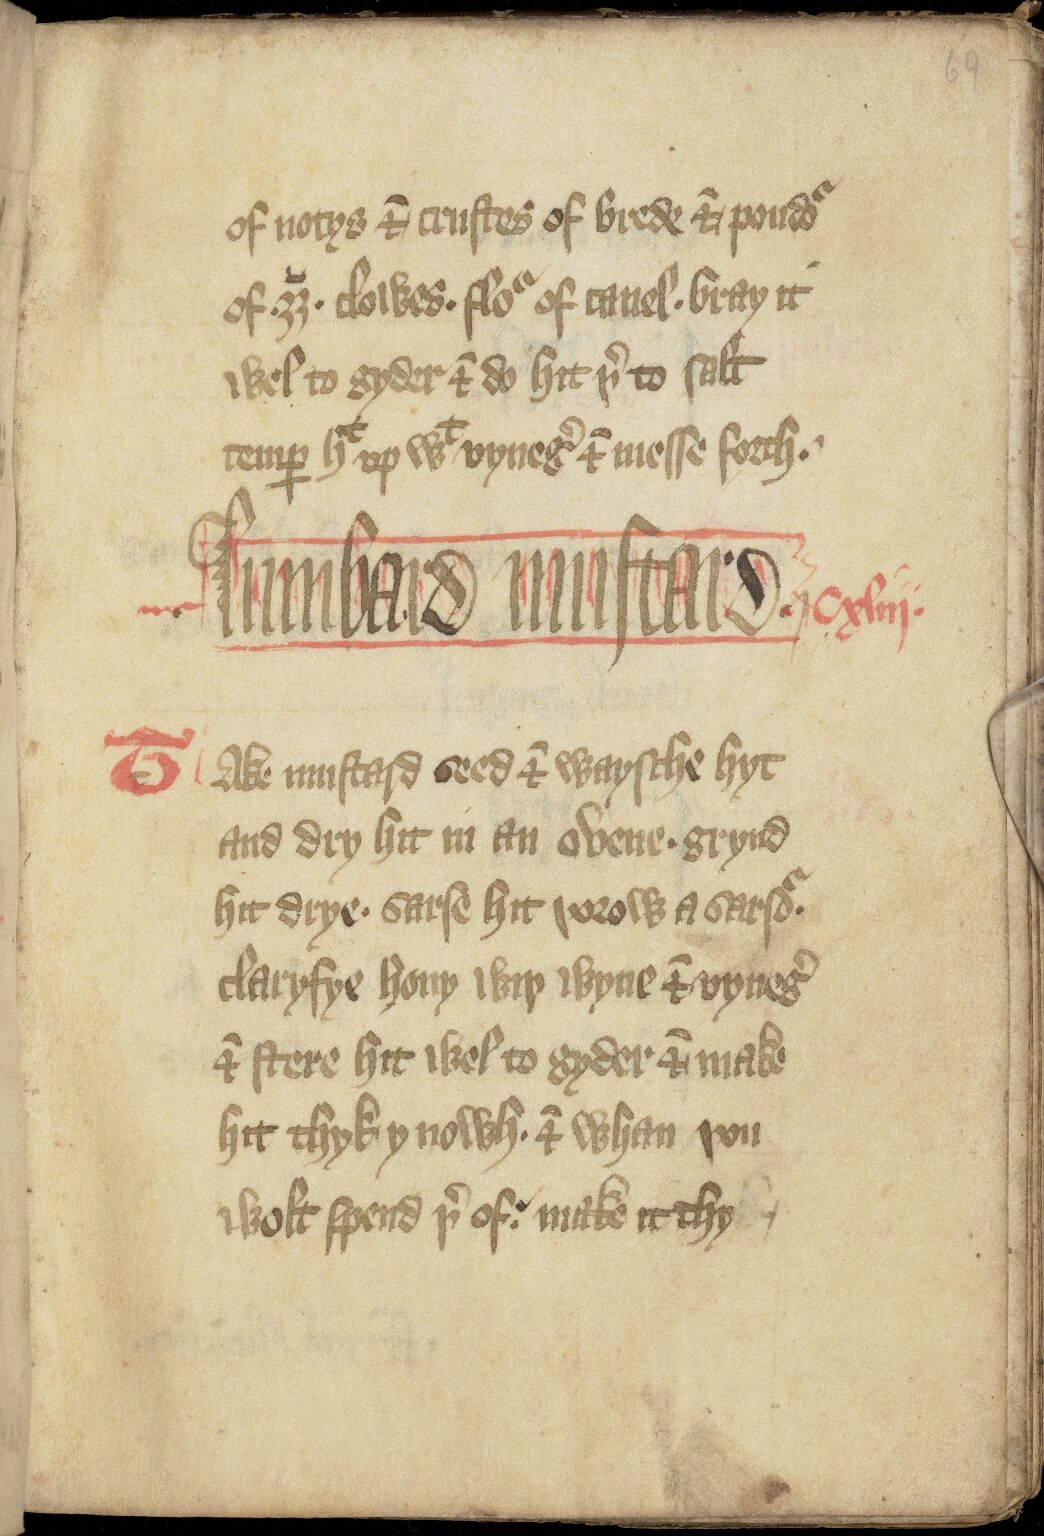 69
of notys & crustes of brede & poudᵒ
of .ʒʒ. clowes. floᵒ of canel. bray it
wel to gyder & do hit þ̉ to salt
temp̲ hᵗ vp wᵗ vyneg̉ & messe forth.
Lumbard mustard. Cxliij.
TAke mustard seed & waysche hyt
and dry hit in an ovene. grynd
hit drye. sarse hit þorow a sarsᵒ.
claryfye hony wiþ wyne & vyneg̉
& stere hit wel to gyder & make
hit thyk y nowh. & whan þou
wolt spend þ̉ of. make it thy